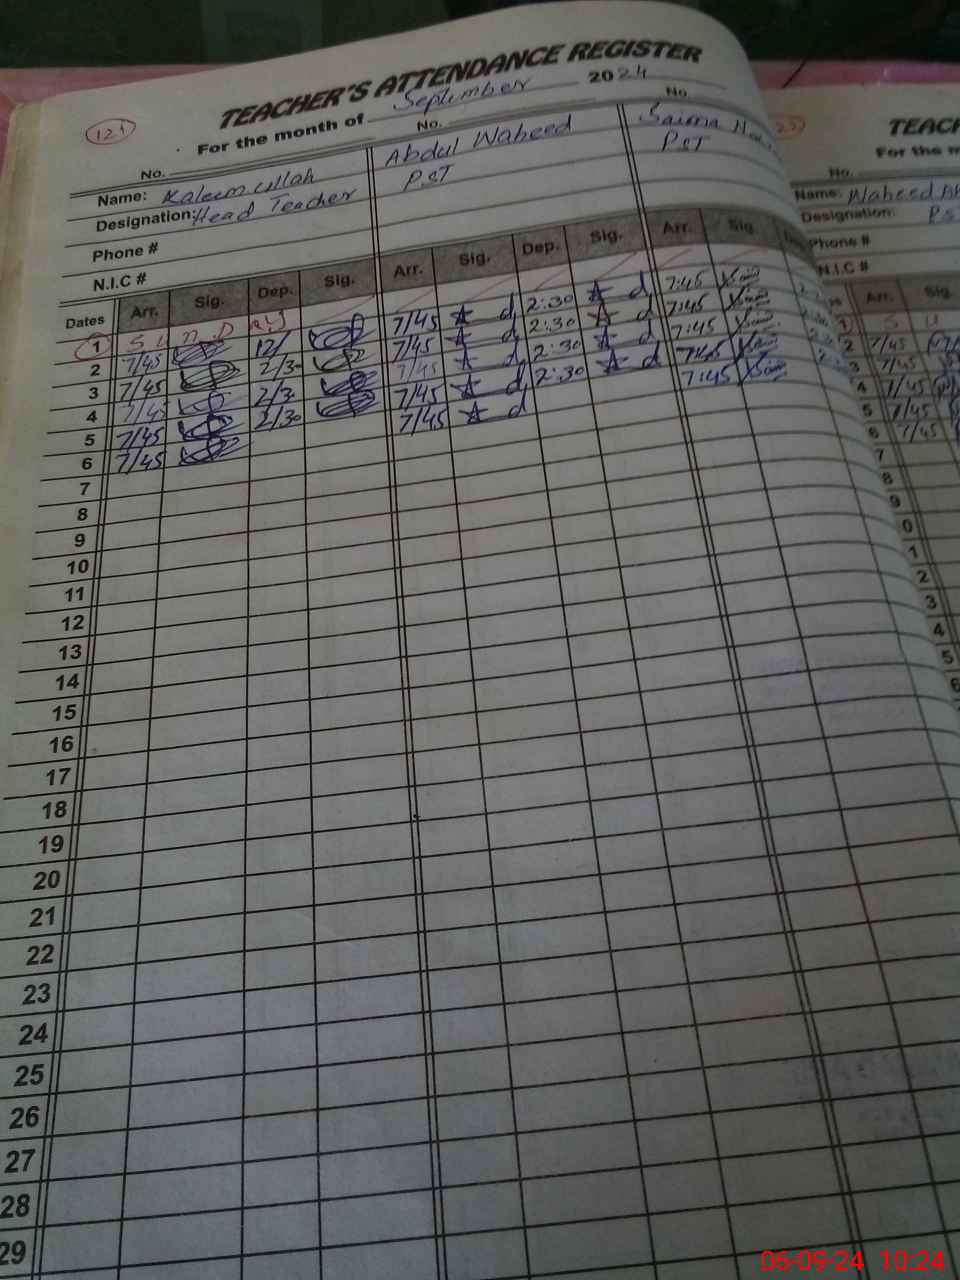 TEACHER'S ATTENDANCE REGISTER
121
For the month of September 2024
No. No. No.
Name: Kaleem ullah Abdul Waheed Saima
Designation: Head Teacher PST PST
Phone #
N.I.C #
Dates Arr. Sig. Dep. Sig. Arr. Sig. Dep. Sig. Arr. Sig.
1 S u n D a y
2 7/45 12/ 7/45 2:30 7:45
3 7/45 2/30 7/45 2:30 7:45
4 7/45 2/30 7/45 2:30 7:45
5 7/45 2/30 7/45 2:30 7:45
6 7/45 7/45 7:45
7
8
9
10
11
12
13
14
15
16
17
18
19
20
21
22
23
24
25
26
27
28
29
TEAC
For the m
No.
Name: Waheed
Designation: PS
Phone #
N.I.C #
Arr. Sig.
S u
2 7/45
3 7/45
4 7/45
5 7/45
6 7/45
7
8
9
0
1
2
3
4
5
6
06-09-24 10:24